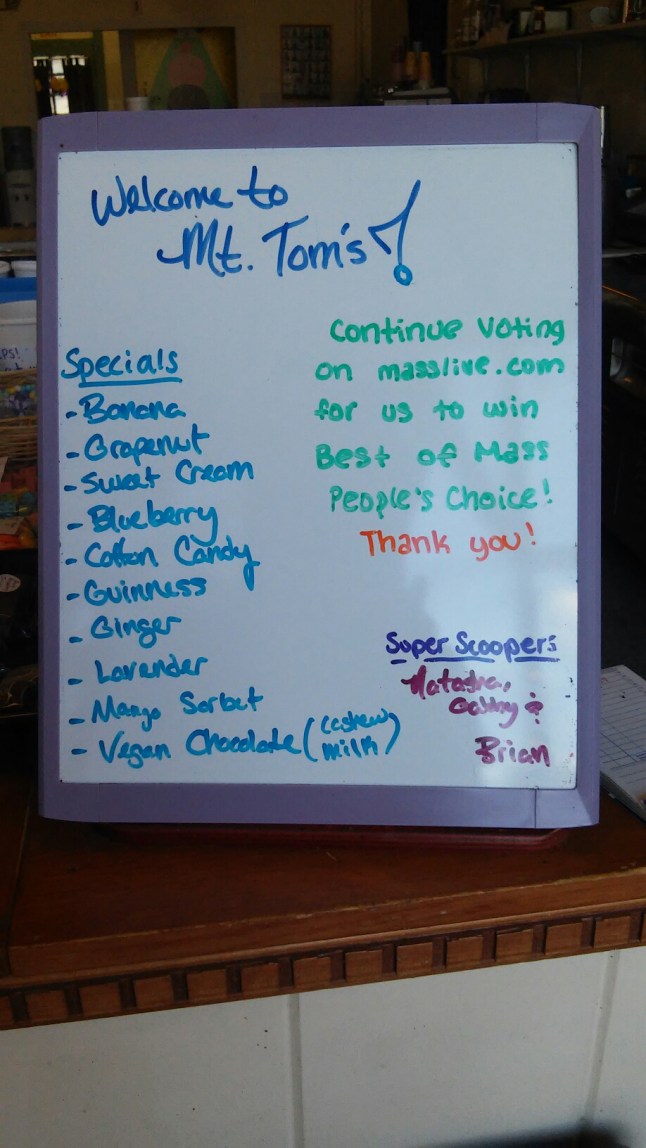 Welcome to
Mt. Tom's!
Specials
- Banana
- Grapenut
- Sweet Cream
- Blueberry
- Cotton Candy
- Guinness
- Ginger
- Lavender
- Mango Sorbet
- Vegan Chocolate (cashew milk)
Continue Voting
on masslive.com
for us to win
Best of Mass
People's Choice!
Thank you!
Super Scoopers
Natasha,
&
Brian